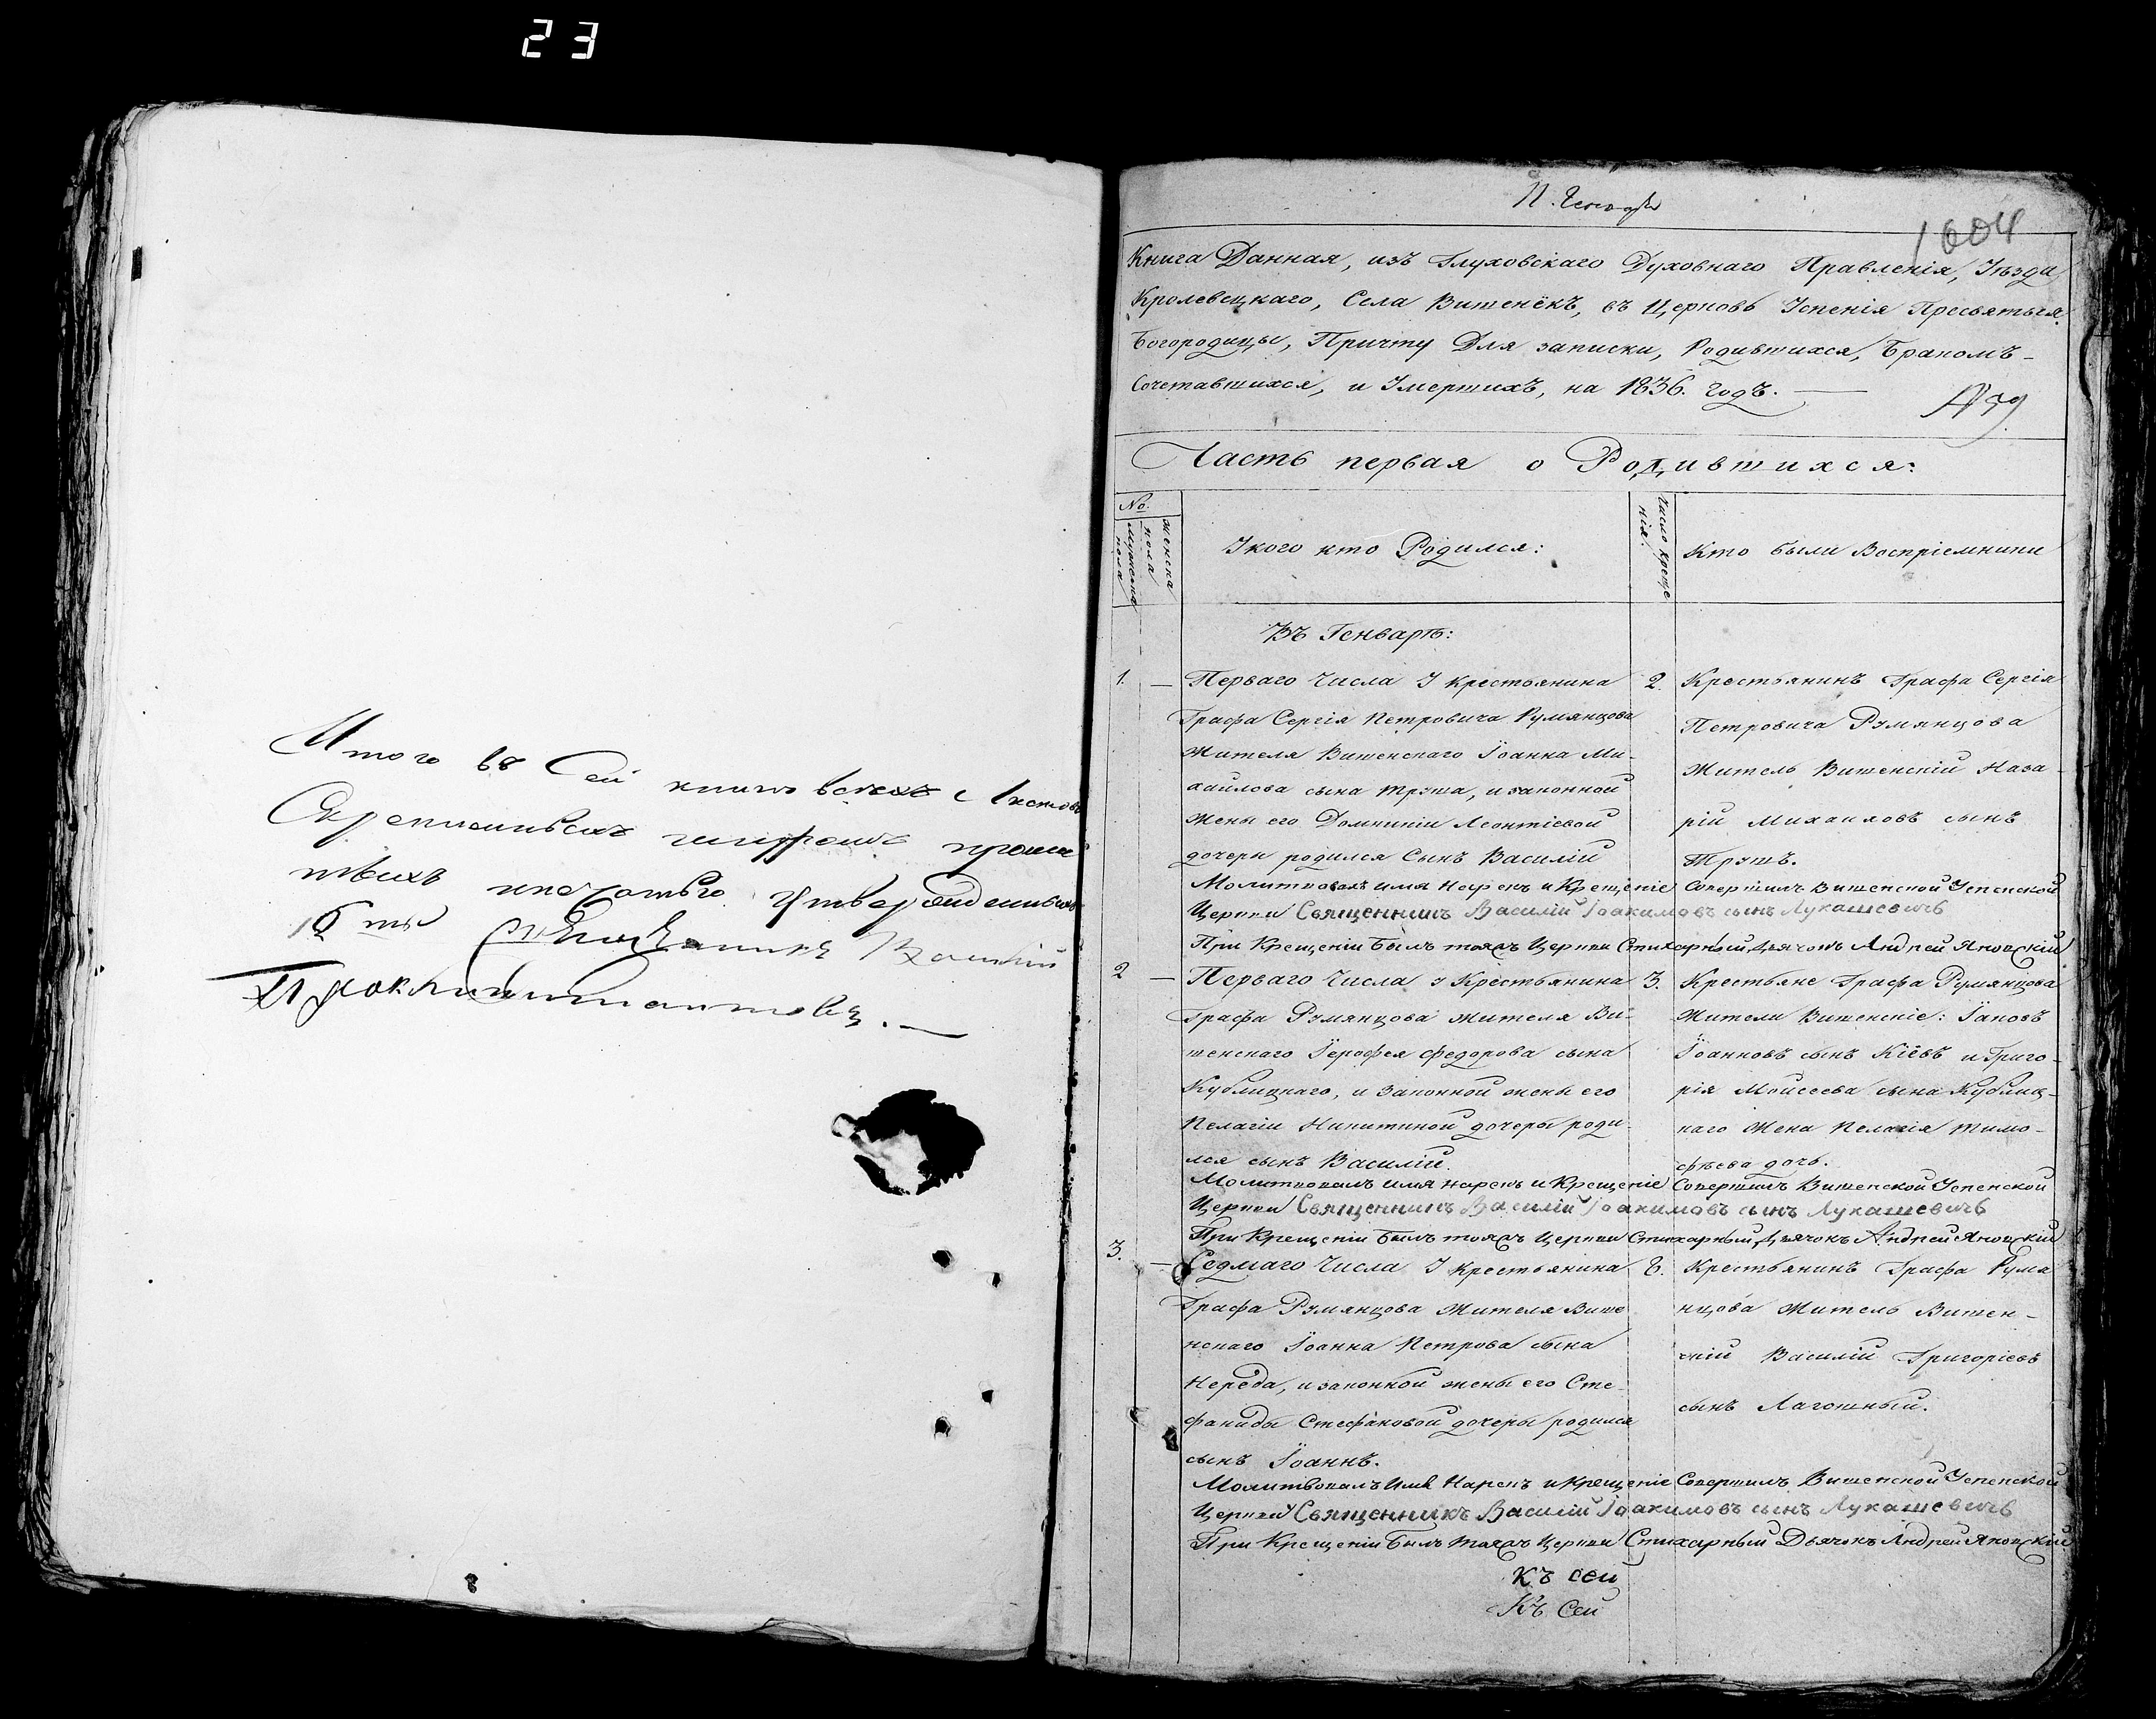 23
Итого въ Сей книгѣ всѣхъ листовъ
Скрепленныхъ
Утвержденныхъ
Священникъ
1604
Книга Данная, изъ Глуховскаго Духовнаго Правленія, Уѣзда
Кролевецкаго, Села Вишенёкъ, въ Церковь Успенія Пресвятыя
Богородицы, Причту Для записки, Родившихся, Бракомъ-
Сочетавшихся, и Умершихъ, на 1836. Годъ.
Часть первая о Родившихся:
№
женска пола
мужеска пола
У кого кто Родился:
Число Креще
нія.
Кто были Воспріемники
Въ Генварѣ:
1. — Перваго Числа У крестьянина
Графа Сергія Петровича Румянцова
Жителя Вишенскаго Іоанна Ми-
хайлова сына Труша, и законной
жены его Домникіи Леонтіевой
дочери родился Сынъ Василій
2. Крестьянинъ Графа Сергія
Петровича Румянцова
Житель Вишенскій Наза-
рій Михаиловъ сынъ
Трушъ.
Молитвовалъ имя Нарекъ и Крещеніе Совершилъ Вишенской Успенской
Церкви Священникъ Василій Іоакимовъ сынъ Лукашевичъ
При Крещеніи Былъ тояжъ Церкви Стихарный Дьячокъ Андрей Яновскій
2 — Перваго Числа у Крестьянина
Графа Румянцова жителя Ви-
шенскаго Іерофея Федорова сына
Кублицкаго, и Законной жены его
Пелагіи Никитиной дочеры роди-
лся сынъ Василій.
3. Крестьяне Графа Румянцова
Жители Вишенскіе:
Іоанновъ сынъ Кіёвъ и Григо-
рія Мойсеева сына Кублиц-
каго Жена Пелагія Тимо-
фѣева дочь.
Молитвовалъ имя нарекъ и Крещеніе Совершилъ Вишенской Успенской
Церкви Священникъ Василій Іоакимовъ сынъ Лукашевичъ
При Крещеніи Былъ тояжъ Церкви Стихарный Дьячокъ Андрей Яновскій
3. — Седмаго Числа У крестьянина
Графа Румянцова Жителя Више
нскаго Іоанна Петрова сына
Нереда, и законной жены его Сте-
фаниды Стефановой дочеры родился
сынъ Іоаннъ.
Крестьянинъ Графа Румя
нцова Житель Вишен-
скій Василій Григоріевъ
сынъ Лагошный.
Молитвовалъ Имя Нарекъ и Крещеніе Совершилъ Вишенской Успенской
Церкви Священникъ Василій Іоакимовъ сынъ Лукашевичъ
При Крещеніи Былъ тояжъ Церкви Стихарный Дьячокъ Андрей Яновскій
Къ сей
Къ Сей